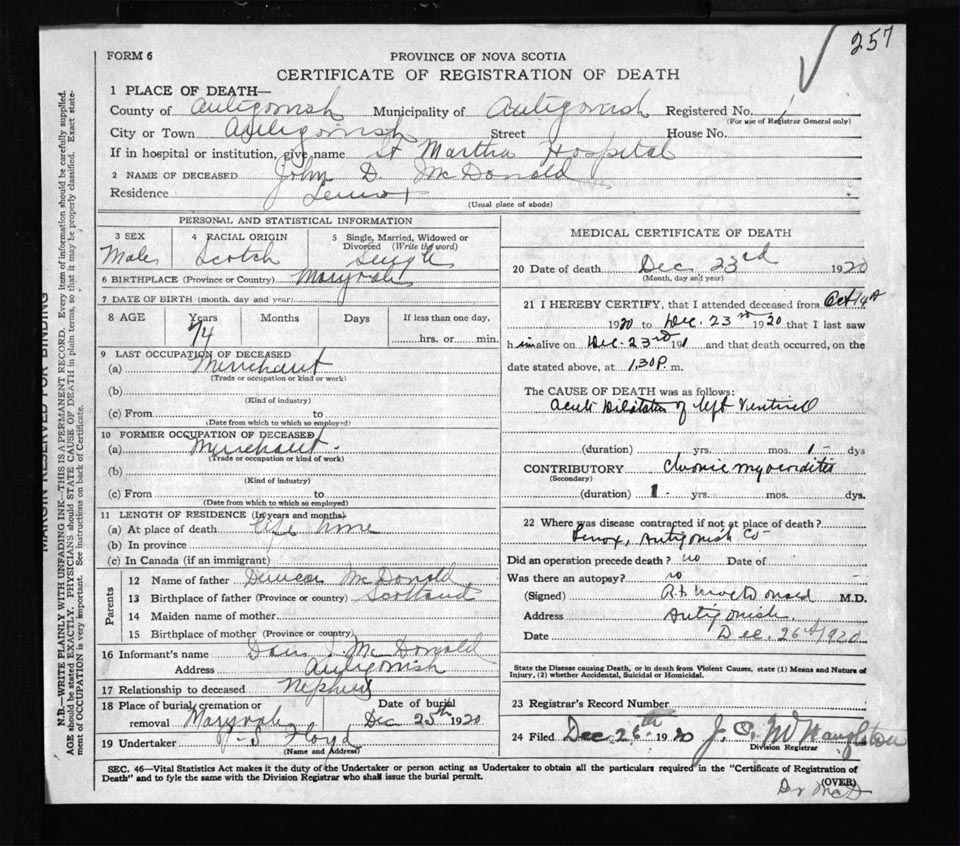 257
FORM 6
PROVINCE OF NOVA SCOTIA
CERTIFICATE OF REGISTRATION OF DEATH
MARGIN RESERVED FOR BINDING
N.B.—WRITE PLAINLY WITH UNFADING INK—THIS IS A PERMANENT RECORD. Every item of information should be carefully supplied.
AGE should be stated EXACTLY. PHYSICIANS should STATE CAUSE OF DEATH in plain terms, so that it may be properly classified. Exact state-
ment of OCCUPATION is very important. See instructions on back of Certificate.
1 PLACE OF DEATH—
County of Antigonish Municipality of Antigonish Registered No. 1
(For use of Registrar General only)
City or Town Antigonish Street House No.
If in hospital or institution, give name St Martha Hospital
2 NAME OF DECEASED John D. McDonald
Residence Lenox
(Usual place of abode)
PERSONAL AND STATISTICAL INFORMATION
3 SEX 4 RACIAL ORIGIN 5 Single, Married, Widowed or Divorced (Write the word)
Male Scotch Single
6 BIRTHPLACE (Province or Country) Maryvale
7 DATE OF BIRTH (month, day and year)
8 AGE Years Months Days If less than one day,
74 hrs. or min.
9 LAST OCCUPATION OF DECEASED
(a) Merchant
(Trade or occupation or kind or work)
(b)
(Kind of industry)
(c) From to
(Date from which to which so employed)
10 FORMER OCCUPATION OF DECEASED
(a) Merchant
(Trade or occupation or kind of work)
(b)
(Kind of industry)
(c) From to
(Date from which to which so employed)
11 LENGTH OF RESIDENCE (In years and months)
(a) At place of death life time
(b) In province
(c) In Canada (if an immigrant)
Parents
12 Name of father Duncan McDonald
13 Birthplace of father (Province or country) Scotland
14 Maiden name of mother
15 Birthplace of mother (Province or country)
16 Informant's name McDonald
Address Antigonish
17 Relationship to deceased Nephew
18 Place of burial, cremation or Date of burial
removal Maryvale Dec 25th 1920
19 Undertaker Floyd
(Name and Address)
MEDICAL CERTIFICATE OF DEATH
20 Date of death Dec 23rd 1920
(Month, day and year)
21 I HEREBY CERTIFY, that I attended deceased from Oct 14th
1920 to Dec. 23rd 1920 that I last saw
h im alive on Dec. 23rd 191 and that death occurred, on the
date stated above, at 1.30 P. m.
The CAUSE OF DEATH was as follows:
Acute Dilatation of left Ventricle
(duration) yrs. mos. 1 - dys
CONTRIBUTORY Chronic myocarditis
(Secondary)
(duration) 1 - yrs. mos. dys.
22 Where was disease contracted if not at place of death?
Lenox, Antigonish Co
Did an operation precede death? no Date of
Was there an autopsy? no
(Signed) MacDonald M.D.
Address Antigonish.
Date Dec. 26th 1920
State the Disease causing Death, or in death from Violent Causes, state (1) Means and Nature of
Injury, (2) whether Accidental, Suicidal or Homicidal.
23 Registrar's Record Number
24 Filed Dec 26th 1920
Division Registrar
SEC. 46—Vital Statistics Act makes it the duty of the Undertaker or person acting as Undertaker to obtain all the particulars required in the "Certificate of Registration of
Death" and to fyle the same with the Division Registrar who shall issue the burial permit.
(OVER)